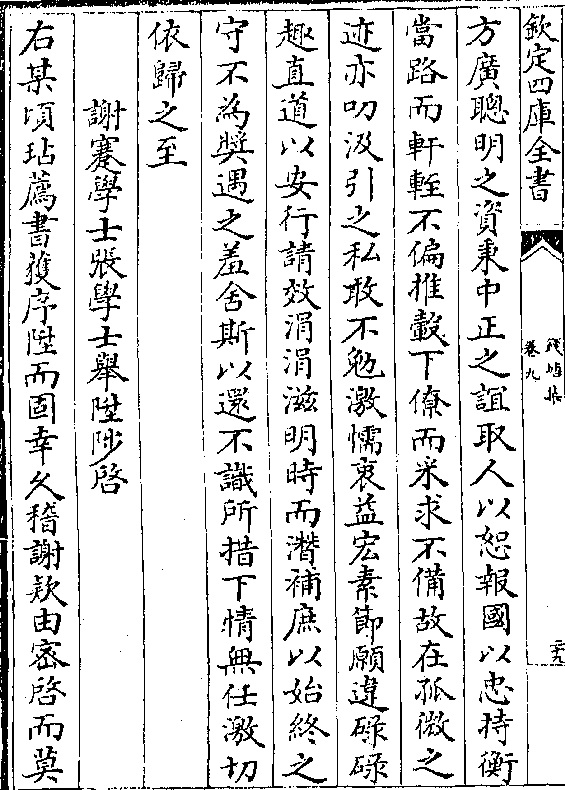 欽定四庫全書
卷九
二十九
方廣聰明之資秉中正之誼取人以恕報國以忠持衡
當路而軒輊不偏推轂下僚而采求不備故在孤微之
迹亦叨汲引之私敢不勉激懦衷益宏素節願違碌碌
趣直道以安行請效涓涓滋明時而潛補庶以始終之
守不為奬遇之羞舍斯以還不識所措下情無任激切
依歸之至
謝蹇學士張學士舉陞陟啓
右某頃玷薦書獲序陞而固幸久稽謝欵由密啓而莫